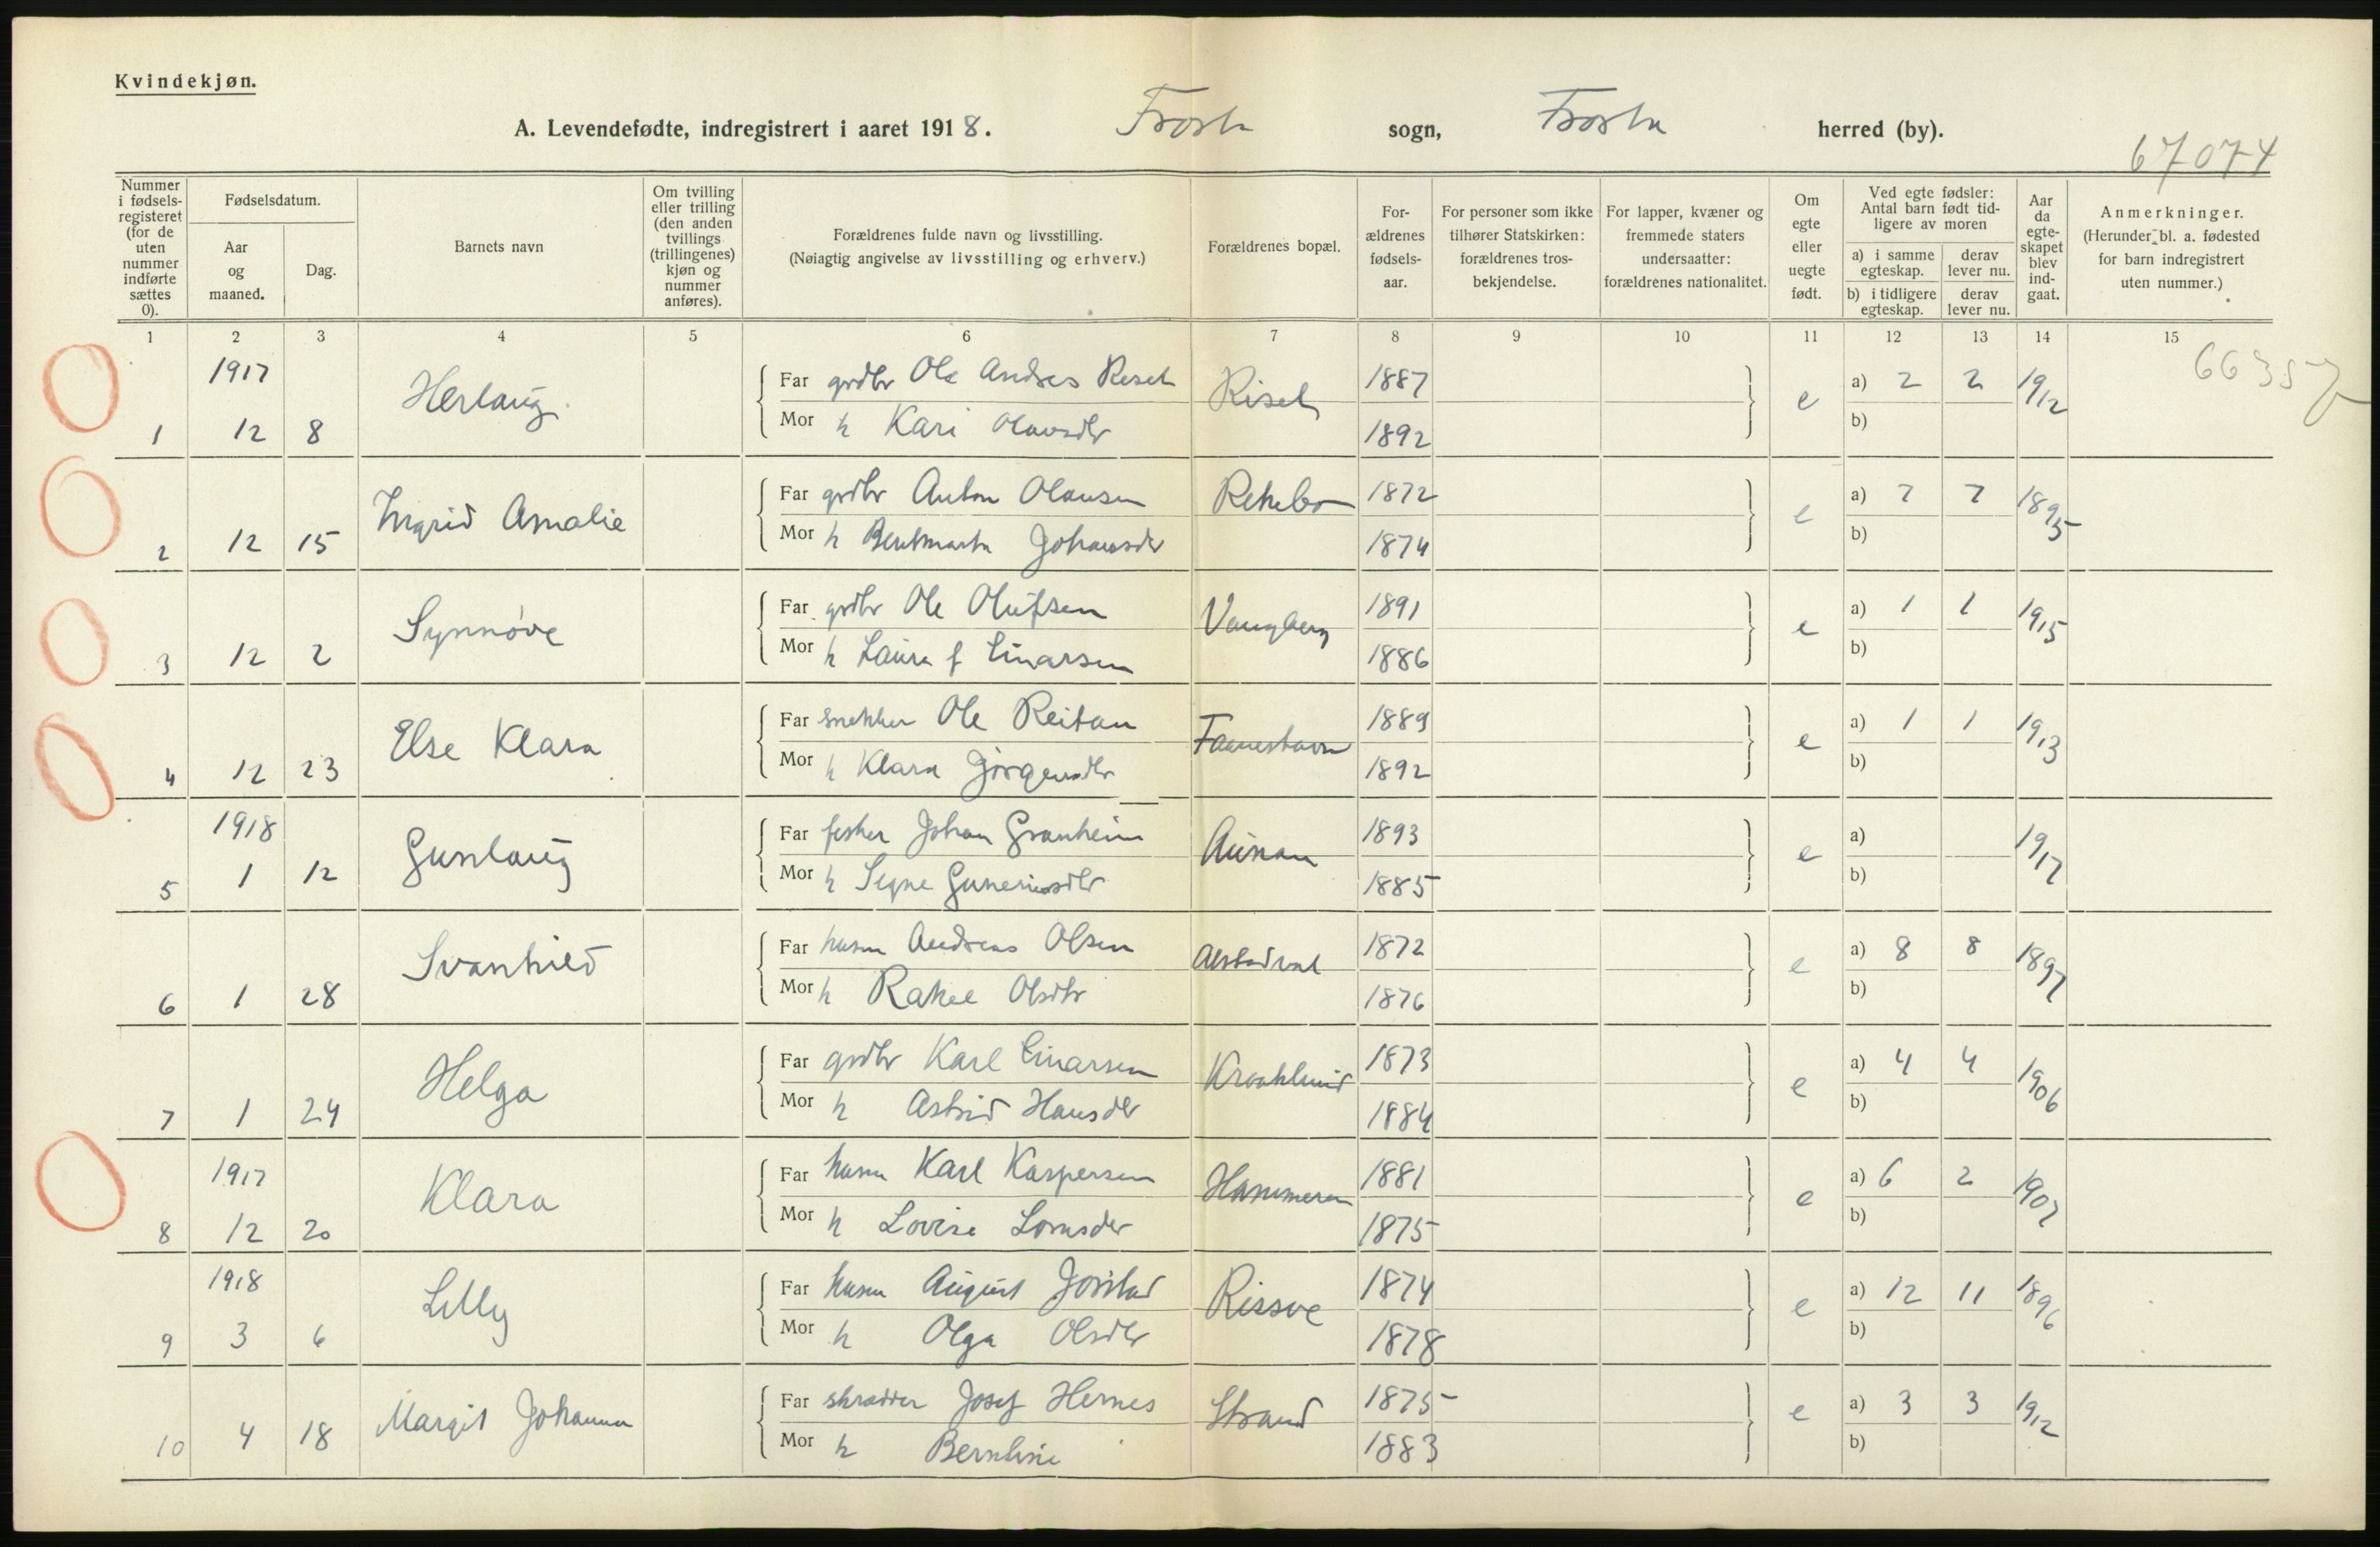 Kvindekjøn.
A. Levendefødte, indregistrert i aaret 1918. Frosta sogn, Frosta herred (by).
67074
Nummer i fødsels-registeret (for de uten nummer indførte sættes 0).
Fødselsdatum.
Aar og maaned.
Dag.
Barnets navn
Om tvilling eller trilling (den anden tvillings (trillingenes) kjøn og nummer anføres).
Forældrenes fulde navn og livsstilling.
(Nøiagtig angivelse av livsstilling og erhverv.)
Forældrenes bopæl.
For-ældrenes fødsels-aar.
For personer som ikke tilhører Statskirken: forældrenes tros-bekjendelse.
For lapper, kvæner og fremmede staters undersaatter: forældrenes nationalitet.
Om egte eller uegte født.
Ved egte fødsler: Antal barn født tid-ligere av moren
a) i samme egteskap.
derav lever nu.
b) i tidligere egteskap.
derav lever nu.
Aar da egte-skapet blev ind-gaat.
Anmerkninger.
(Herunder bl. a. fødested for barn indregistrert uten nummer.)
1 2 3 4 5 6 7 8 9 10 11 12 13 14 15
66357
1917
1 12 8 Herlaug
Far grdbr Ole Andres Reset Riset 1887 e a) 2 2 1912
Mor h Kari Olausdtr 1892 b)
2 12 15 Ingrid Amalie
Far grdbr Anton Olausen Rekebo 1872 e a) 7 7 1895
Mor h Johansdtr 1874 b)
3 12 2 Synnøve
Far grdbr Ole Olufsen Vangberg 1891 e a) 1 1 1915
Mor h Laura f Einarsen 1886 b)
4 12 23 Else Klara
Far snekker Ole Reitan 1889 e a) 1 1 1913
Mor h Klara Jørgensdtr 1892 b)
1918
5 1 12 Gunlaug
Far fisker Johan Granheim Aunan 1893 e a) 1917
Mor h Signe Guneriusdtr 1885 b)
6 1 28 Svanhild
Far husm Andreas Olsen 1872 e a) 8 8 1897
Mor h Rakel Olsdtr 1876 b)
7 1 24 Helga
Far grdbr Karl Einarsen 1873 e a) 4 4 1906
Mor h Astrid Hansdtr 1884 b)
1917
8 12 20 Klara
Far husm Karl Kaspersen Hammeren 1881 e a) 6 2 1907
Mor h Lovise 1875 b)
1918
9 3 6 Lilly
Far husm August Jørstad Rissve 1874 e a) 12 11 1896
Mor h Olga Olsdtr 1878 b)
10 4 18 Margit Johanna
Far skrædder Josef Hernes Strand 1875 e a) 3 3 1912
Mor h Berntine 1883 b)